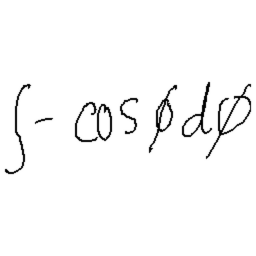 ∫ - cosϕdϕ